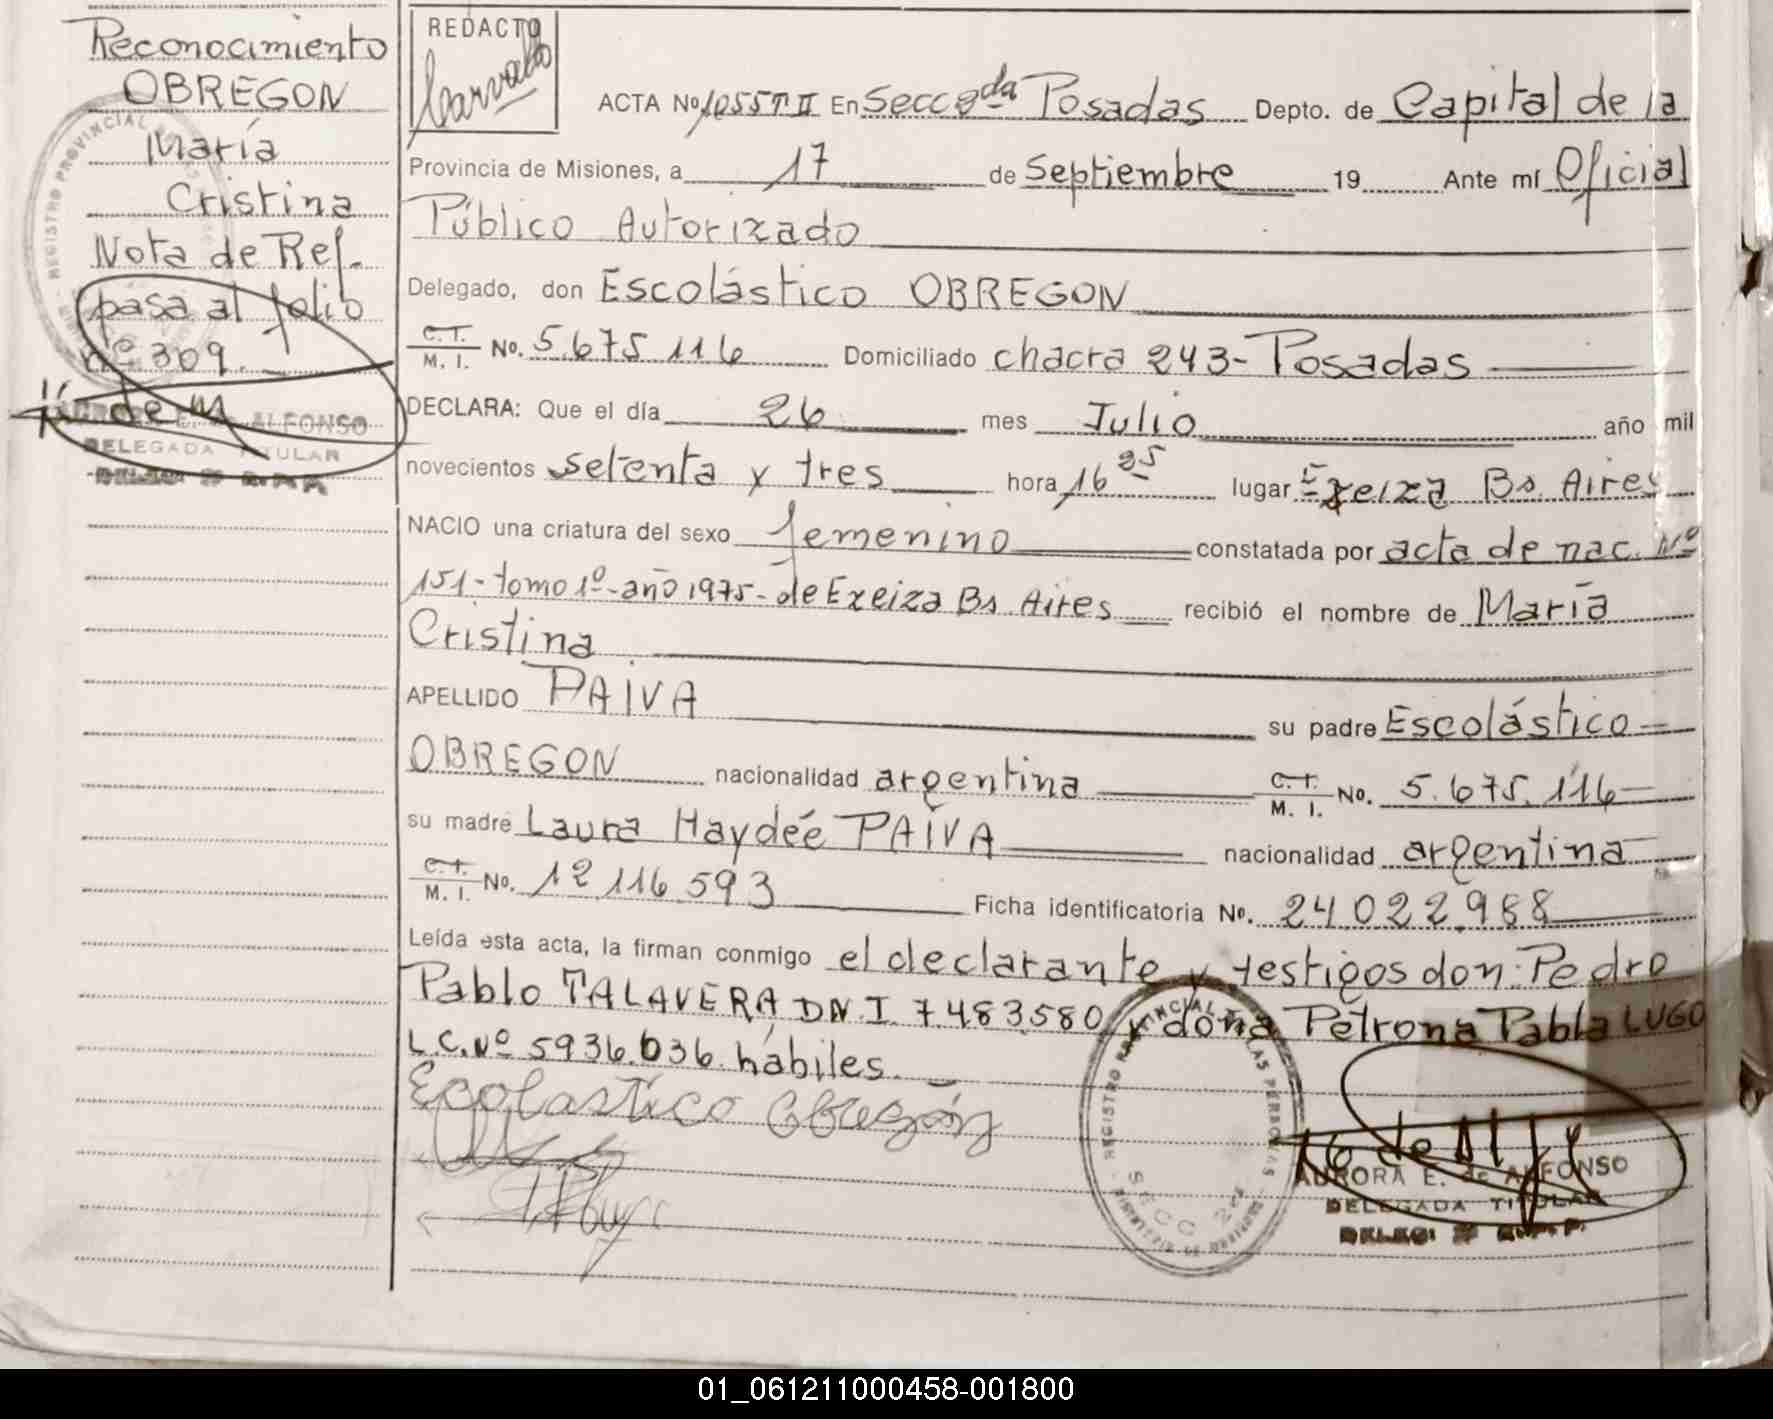 Reconocimiento
OBREGON
María
Cristina
Nota de Ref.
pasa al folio
nº 309.
ALFONSO
DELEGADA TITULAR
REDACTO
Carvallo
ACTA Nº 1055 T II En Secc 2da Posadas Depto. de Capital de la
Provincia de Misiones, a 17 de Septiembre 19 Ante mí Oficial
Público Autorizado
Delegado, don Escolástico OBREGON
C.T. M. I. No. 5.675.116 Domiciliado chacra 243-Posadas
DECLARA: Que el día 26 mes Julio año mil
novecientos setenta y tres hora 16 25 lugar Ezeiza Bs Aires
NACIO una criatura del sexo femenino constatada por acta de nac. Nº
151-tomo 1º-año 1975-de Ezeiza Bs. Aires recibió el nombre de María
Cristina
APELLIDO PAIVA su padre Escolástico
OBREGON nacionalidad argentina C.T. M. I. No. 5.675.116
su madre Laura Haydée PAIVA nacionalidad argentina
C.T. M. I. No. 12.116.593 Ficha identificatoria No. 24.022.988
Leída esta acta, la firman conmigo el declarante y testigos don: Pedro
Pablo TALAVERA DN.I 7.483.580 y doña Petrona Pabla LUGO
L.C.Nº 5936.036. hábiles.
Ecolastico Obregón
REGISTRO PROVINCIAL DE LAS PERSONAS
SECC 2da
AURORA E. de ALFONSO
DELEGADA TITULAR
01_061211000458-001800